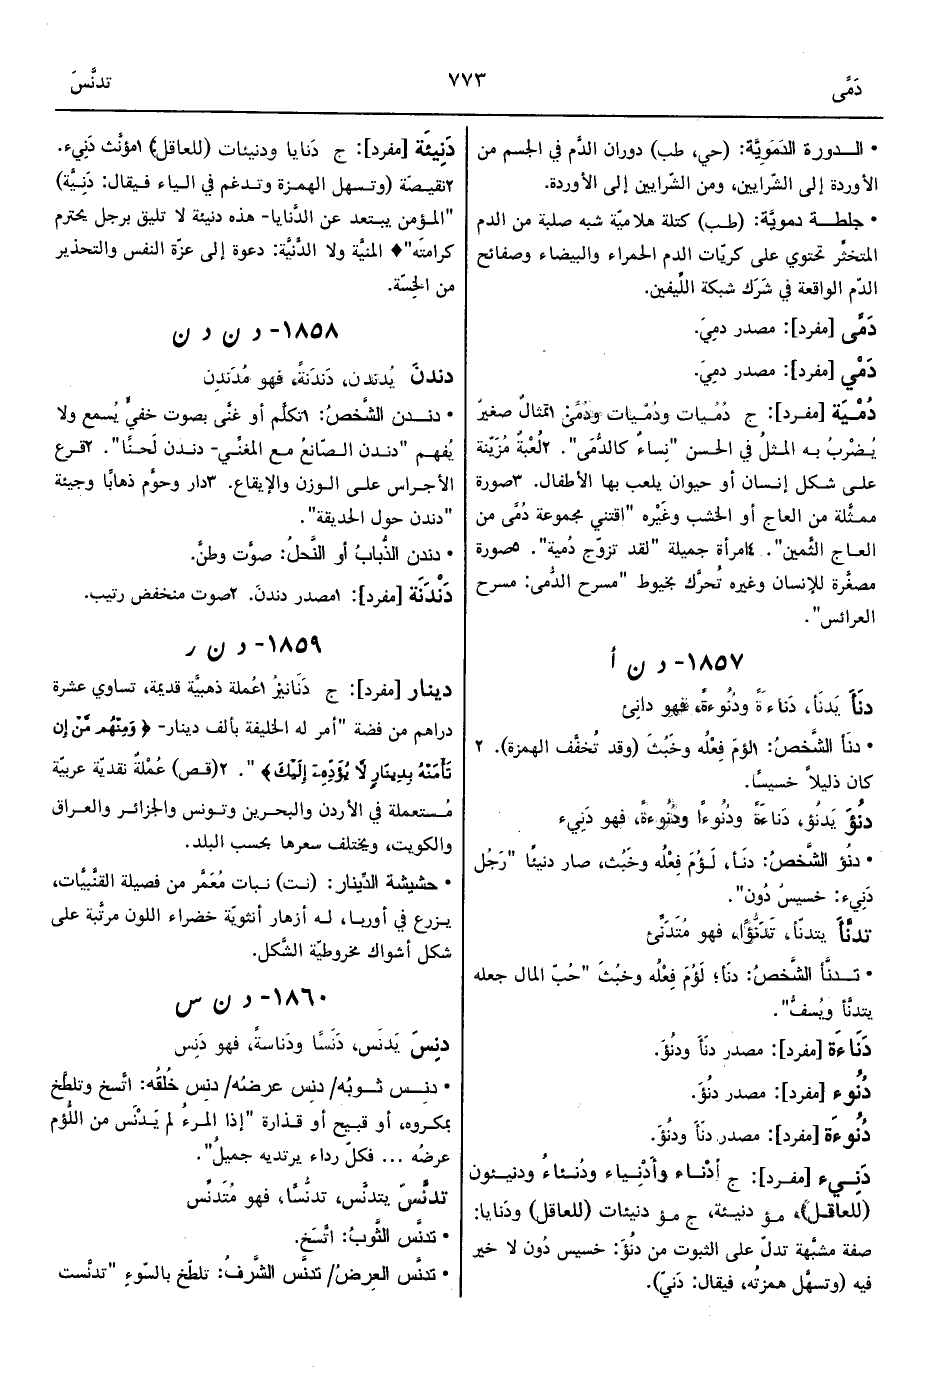 دَمًى
٧٧٣
تدنَّسَ
• الدورة الدَمَويَّة: (حي، طب) دوران الدَّم في الجسم من
الأوردة إلى الشَّرايين، ومن الشَّرايين إلى الأوردة.
• جلطة دمويَّة: (طب) كتلة هلاميَّة شبه صلبة من الدم
المتخثِّر تحتوي على كريَّات الدم الحمراء والبيضاء وصفائح
الدّم الواقعة في شَرَك شبكة اللِّيفين.
دَمًى [مفرد]: مصدر دمِيَ.
دَمْي [مفرد]: مصدر دمِيَ.
دُمْيَة [مفرد]: ج دُمْيات ودُمْيات ودُمًى: ١تمثالٌ صغيرٌ
يُضْرَبُ به المثلُ في الحسن "نِساءٌ كالدُّمَى". ٢لُعْبَةٌ مُزَيّنة
على شكل إنسان أو حيوان يلعب بها الأطفال. ٣صورة
ممثَّلة من العاج أو الخشب وغَيْره "اقتني مجموعة دُمًى من
العاج الثَّمين". ٤امرأة جميلة "لقد تزوّج دُمية". ٥صورة
مصغَّرة للإنسان وغيره تُحرَّك بخيوط "مسرح الدُّمى: مسرح
العرائس".
١٨٥٧- د ن أ
دنَأَ يَدنَأ، دَناءَةً ودُنُوءةً، فهو دانِئ
• دنَأ الشَّخصُ: ١لؤم فِعْلُه وخَبُثَ (وقد تُخفَّف الهمزة). ٢
كان ذليلاً خسيسًا.
دنُؤَ يَدنُؤ، دَناءَةً ودُنُوءًا ودُنُوءةً، فهو دَنِيء
• دنُؤ الشَّخصُ: دنَأ، لَؤُمَ فِعْلُه وخَبُث، صار دنيئًا "رَجُل
دَنِيء: خسيسٌ دُون".
تدنَّأَ يتدنّأ، تَدَنُّؤًا، فهو مُتَدَنِّئ
• تدنَّأ الشَّخصُ: دنَأ؛ لَؤُمَ فِعْلُه وخبُثَ "حُبّ المال جعله
يتدنَّأ ويُسفُّ".
دَنَاءَة [مفرد]: مصدر دنَأَ ودنُؤَ.
دُنُوء [مفرد]: مصدر دنُؤَ.
دُنُوءَة [مفرد]: مصدر دنَأَ ودنُؤَ.
دَنِيء [مفرد]: ج أدْناء وأدْنِياء ودُنَاءُ ودنيئون
(للعاقل)، مؤ دنيئة، ج مؤ دنيئات (للعاقل) ودَنايا:
صفة مشبَّهة تدلّ على الثبوت من دنُؤَ: خسيس دُون لا خير
فيه (وتسهَّل همزتُه، فيقال: دَنيّ).
دَنِيئَة [مفرد]: ج دَنايا ودنيئات (للعاقل) ١مؤنَّث دَنِيء.
٢نقيصَة (وتسهل الهمزة وتدغم في الياء فيقال: دَنِيَّة)
"المؤمن يبتعد عن الدَّنايا- هذه دنيئة لا تليق برجل يحترم
كرامتَه"♦ المنيَّة ولا الدَّنيَّة: دعوة إلى عزّة النفس والتحذير
من الخِسَّة.
١٨٥٨- د ن د ن
دندنَ يُدندن، دَندَنةً، فهو مُدَندِن
• دندن الشَّخصُ: ١تكلَّم أو غنَّى بصوت خفيٍّ يُسمع ولا
يُفهم "دندن الصّانعُ مع المغنِّي- دندن لَحنًا". ٢قرع
الأجراس على الوزن والإيقاع. ٣دار وحوَّم ذهابًا وجيئة
"دندن حول الحديقة".
• دندن الذُّبابُ أو النَّحلُ: صوَّت وطنَّ.
دَنْدَنَة [مفرد]: ١مصدر دندنَ. ٢صوت منخفض رتيب.
١٨٥٩- د ن ر
دينار [مفرد]: ج دَنَانيرُ ١عُملة ذهبيَّة قديمَة، تساوي عشرة
دراهم من فضة "أمر له الخليفة بألف دينار- ﴿ وَمِنْهُمْ مَّنْ إِنْ
تَأْمَنْهُ بِدِينَارٍ لَا يُؤَدِّهِ إِلَيْكَ﴾ ". ٢(قص) عُملةٌ نقديّة عربيّة
مُستعملة في الأردن والبحرين وتونس والجزائر والعراق
والكويت، ويختلف سعرها بحسب البلد.
• حشيشة الدِّينار: (نت) نبات مُعَمَّر من فصيلة القنَّبيَّات،
يزرع في أوربا، له أزهار أنثويّة خضراء اللون مرتَّبة على
شكل أشواك مخروطيّة الشَّكل.
١٨٦٠- د ن س
دنِسَ يَدنَس، دَنَسًا ودَناسةً، فهو دَنِس
• دنِس ثوبُه/ دنِس عرضُه/ دنِس خُلُقُه: اتَّسخ وتلطَّخ
بمكروه، أو قبيح أو قذارة "إذا المرءُ لم يَدْنَس من اللُّؤم
عرضُه ... فكلّ رداء يرتديه جميلُ".
تدنَّسَ يتدنَّس، تدنُّسًا، فهو مُتَدنِّس
• تدنَّس الثَّوبُ: اتَّسَخ.
• تدنَّس العِرضُ/ تدنَّس الشَّرفُ: تلطَّخ بالسّوءِ "تدنَّست